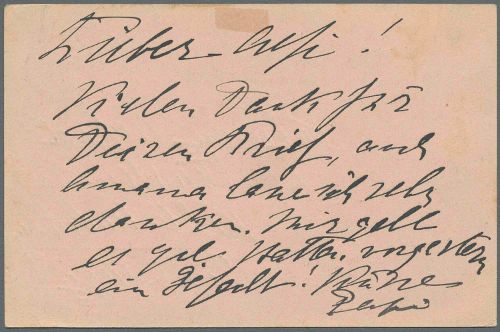 Lieber Alfi!
Vielen Dank für
Deinen Brief, auch
Amama lasse ich sehr
danken. Mir geht
es gut. Hatten vorgestern
ein Gefecht! Küsse